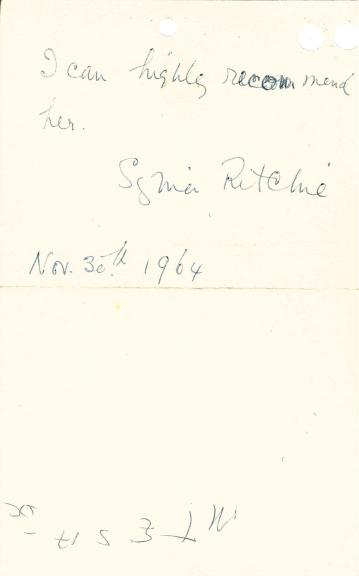 I can highly recommend
her.
Ritchie
Nov. 30th 1964